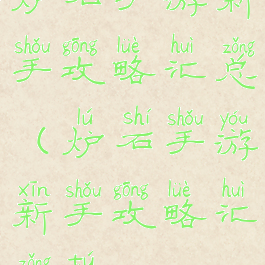 炉石手游新
shǒu gōng lüè huì zǒng
手攻略汇总
lú shí shǒu yóu
（炉石手游
xīn shǒu gōng lüè huì
新手攻略汇
zǒng tú